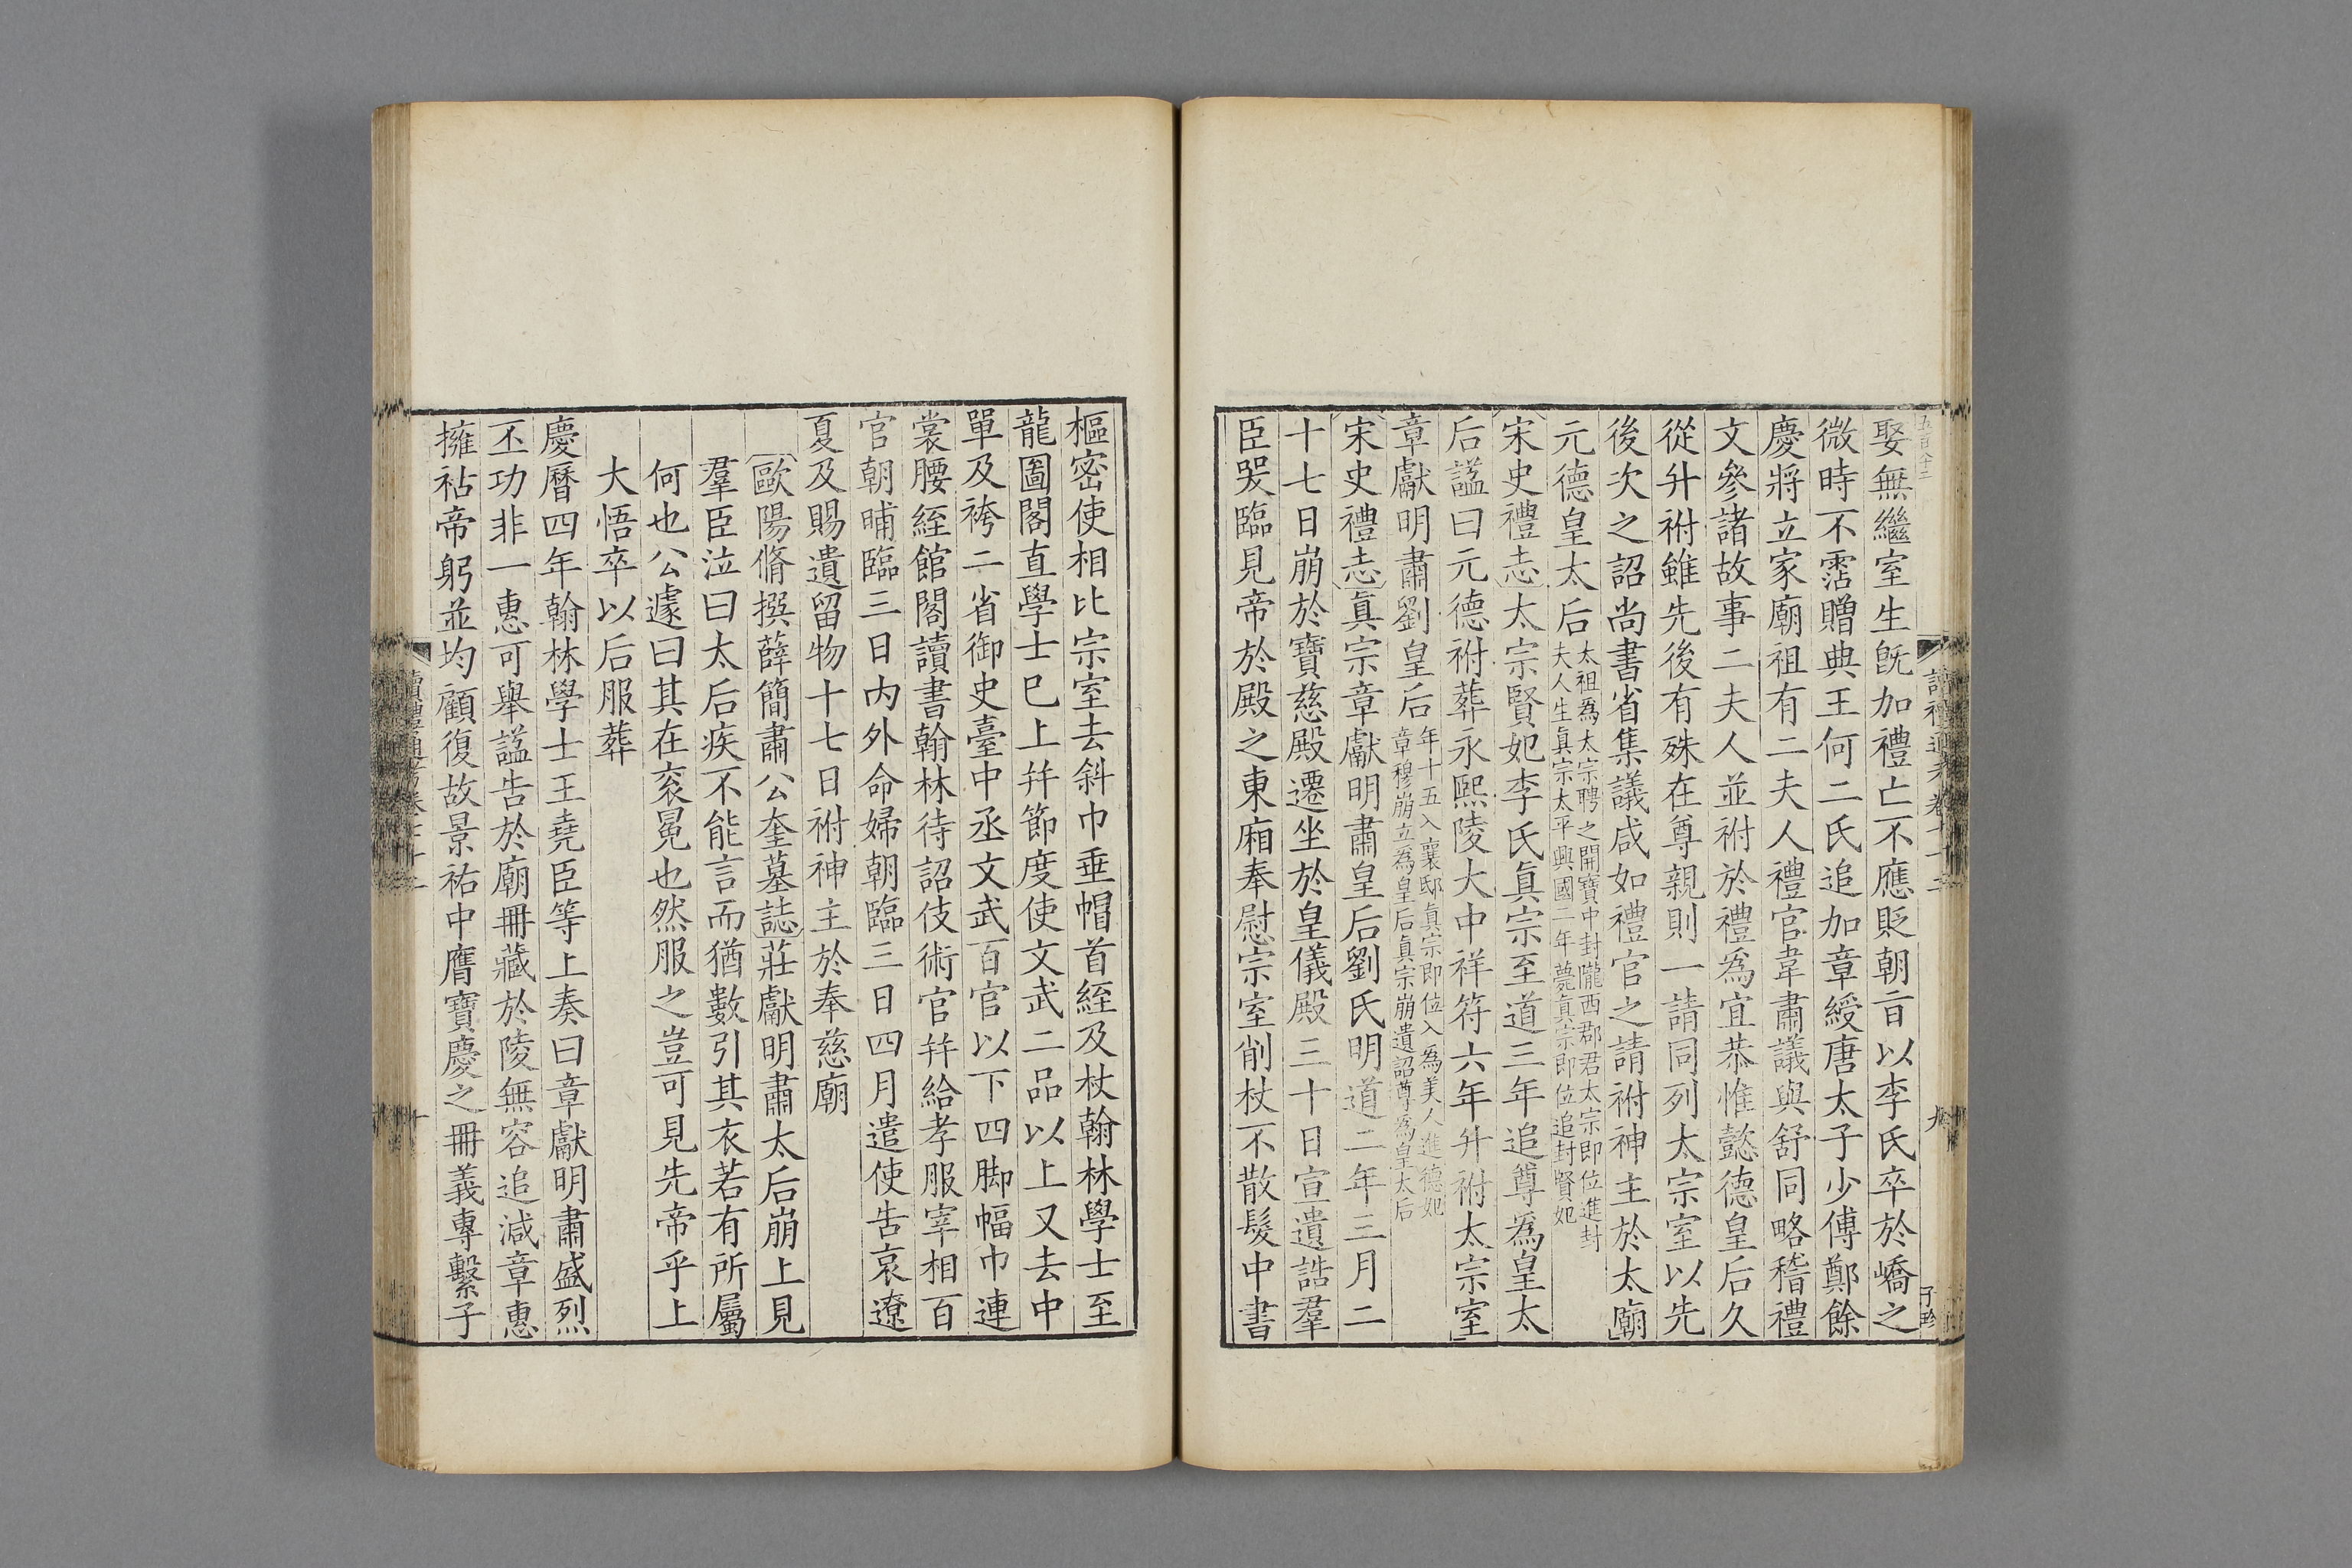 娶無繼室生旣加禮亡不應貶朝旨以李氏卒於嶠之
微時不霑贈典王何二氏追加章綬唐太子少傅鄭餘
慶將立家廟祖有二夫人禮官韋肅議與舒同略稽禮
文參諸故事二夫人並祔於禮爲宜恭惟懿德皇后久
從升祔雖先後有殊在尊親則一請同列太宗室以先
後次之詔尚書省集議咸如禮官之請祔神主於太廟
元德皇太后太祖爲太宗聘之開寶中封隴西郡君太宗即位進封
夫人生眞宗太平興國二年薨眞宗即位追封賢妃
宋史禮志太宗賢妃李氏眞宗至道三年追尊爲皇太
后謚曰元德祔葬永熙陵大中祥符六年升祔太宗室
章獻明肅劉皇后年十五入襄邸眞宗即位入爲美人進德妃
章穆崩立爲皇后眞宗崩遺詔尊爲皇太后
宋史禮志眞宗章獻明肅皇后劉氏明道二年三月二
十七日崩於寶慈殿遷坐於皇儀殿三十日宣遺誥羣
臣哭臨見帝於殿之東廂奉慰宗室削杖不散髮中書
樞密使相比宗室去斜巾垂帽首絰及杖翰林學士至
龍圖閣直學士已上幷節度使文武二品以上又去中
單及袴二省御史臺中丞文武百官以下四脚幅巾連
裳腰絰館閣讀書翰林待詔伎術官幷給孝服宰相百
官朝晡臨三日內外命婦朝臨三日四月遣使告哀遼
夏及賜遺留物十七日祔神主於奉慈廟
歐陽脩撰薛簡肅公奎墓誌莊獻明肅太后崩上見
羣臣泣曰太后疾不能言而猶數引其衣若有所屬
何也公遽曰其在衮冕也然服之豈可見先帝乎上
大悟卒以后服葬
慶曆四年翰林學士王堯臣等上奏曰章獻明肅盛烈
丕功非一惠可舉謚告於廟冊藏於陵無容追減章惠
擁祐帝躬並均顧復故景祐中膺寶慶之冊義專繫子